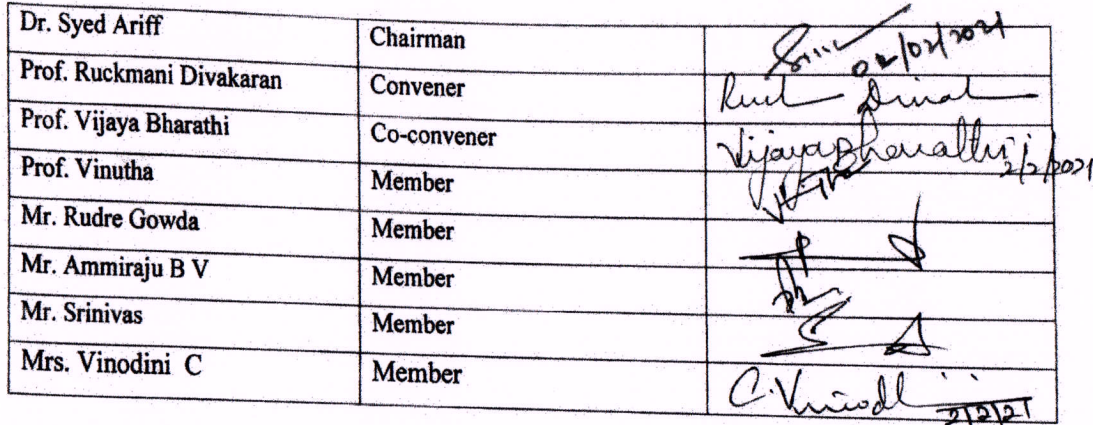 Dr. Syed Ariff Chairman 02/02/2021
Prof. Ruckmani Divakaran Convener
Prof. Vijaya Bharathi Co-convener Vijaya Bharathi 2/2/2021
Prof. Vinutha Member
Mr. Rudre Gowda Member
Mr. Ammiraju B V Member
Mr. Srinivas Member
Mrs. Vinodini C Member C. Vinodini 2/2/21